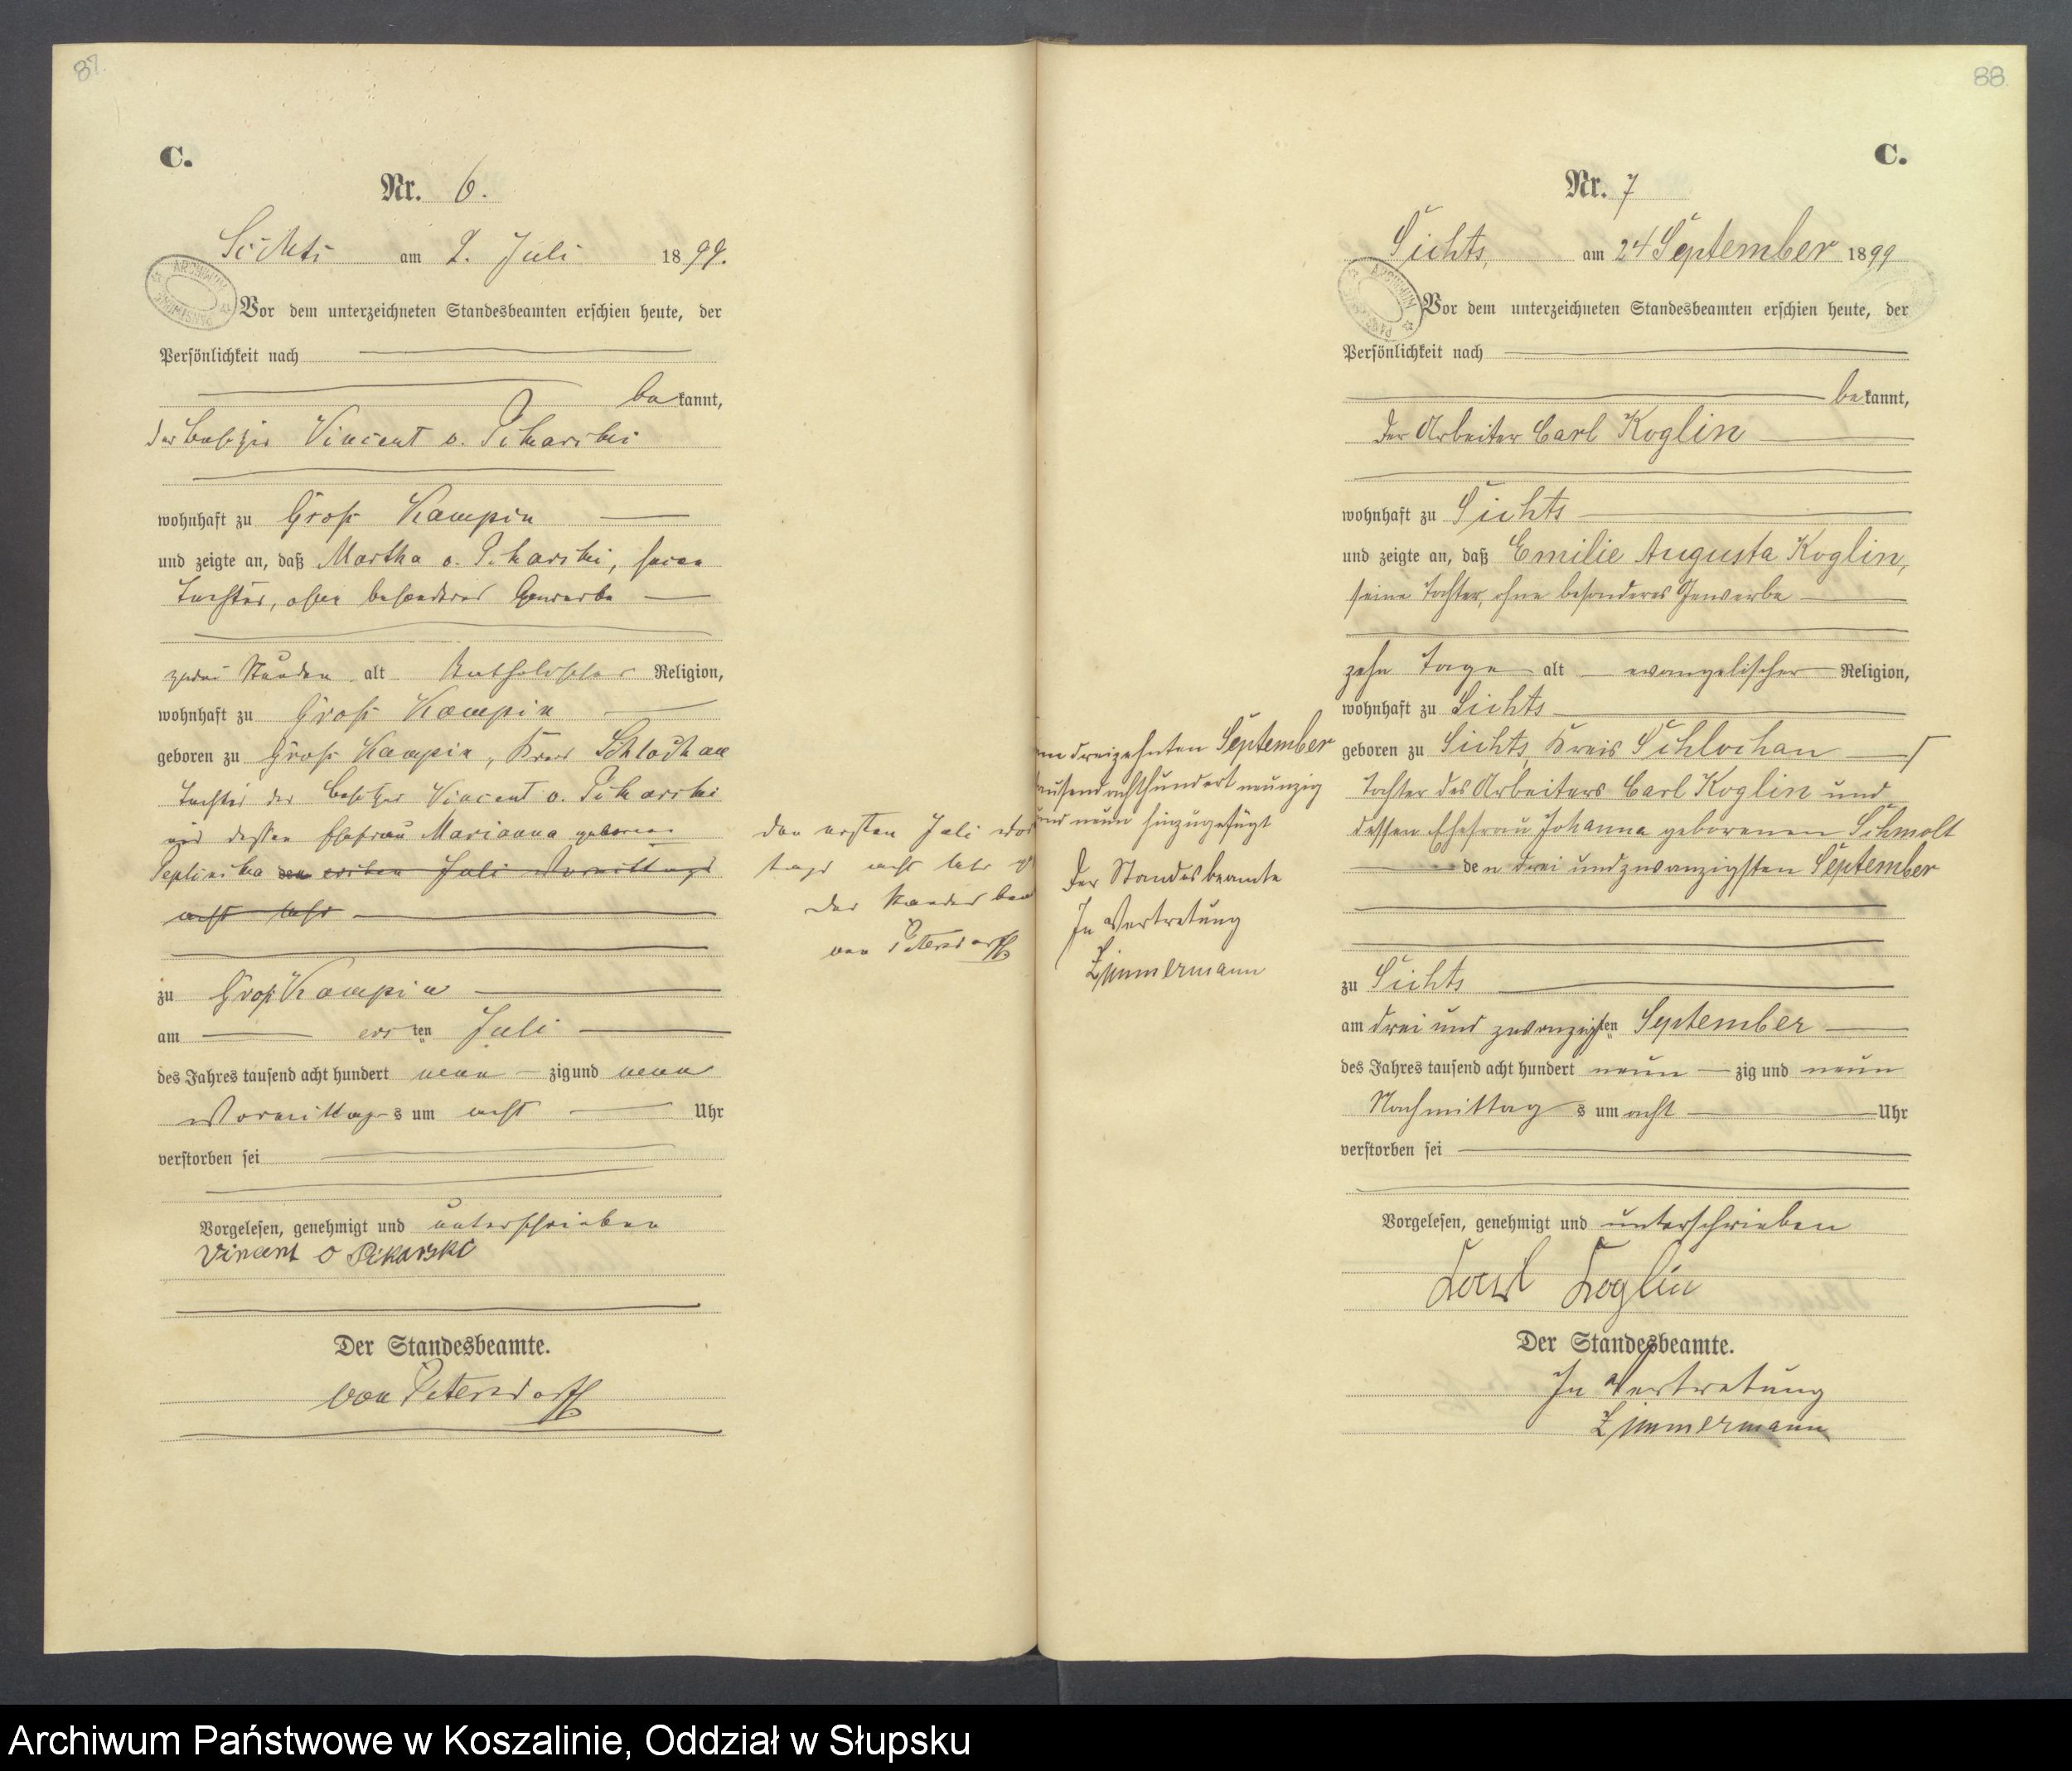 87.
C.
Nr. 6.
Sichts am 2. Juli 1899.
Vor dem unterzeichneten Standesbeamten erschien heute, der
Persönlichkeit nach
bekannt,
der Besitzer Vincent v. Pikarski
wohnhaft zu Groß Kampin
und zeigte an, daß Martha v. Pikarski, seine
Tochter, ohne besonderes Gewerbe
Stunden alt katholischer Religion,
wohnhaft zu Groß Kampin
geboren zu Groß Kampin, Kreis Schlochau
Tochter des Besitzer Vincent v. Pikarski
und dessen Ehefrau Marianna geborene
Peplinska den ersten Juli Vormittags
acht Uhr
zu Groß Kampin
am ersten Juli
des Jahres tausend acht hundert neun zig und neun
Vormittags um acht Uhr
verstorben sei
Vorgelesen, genehmigt und unterschrieben
Vincent v Pikarski
Der Standesbeamte.
von Petersdorff
den ersten Juli Vor
tags acht Uhr
Der Standesbea
von Petersdorff
88.
C.
Nr. 7
Sichts, am 24 September 1899
Vor dem unterzeichneten Standesbeamten erschien heute, der
Persönlichkeit nach
bekannt,
der Arbeiter Carl Koglin
wohnhaft zu Sichts
und zeigte an, daß Emilie Augusta Koglin,
seine Tochter, ohne besonderes Gewerbe
zehn Tage alt evangelischer Religion,
wohnhaft zu Sichts
geboren zu Sichts, Kreis Schlochau
Tochter des Arbeiters Carl Koglin und
dessen Ehefrau Johanna geborenen Schmolt
den drei und zwanzigsten September
zu Sichts
am drei und zwanzigsten September
des Jahres tausend acht hundert neun zig und neun
Nachmittags um acht Uhr
verstorben sei
Vorgelesen, genehmigt und unterschrieben
Karl Koglin
Der Standesbeamte.
In Vertretung
Zimmermann
am dreizehnten September
tausendachthundert neunzig
und neun hinzugefügt
Der Standesbeamte
In Vertretung
Zimmermann
Archiwum Państwowe w Koszalinie, Oddział w Słupsku